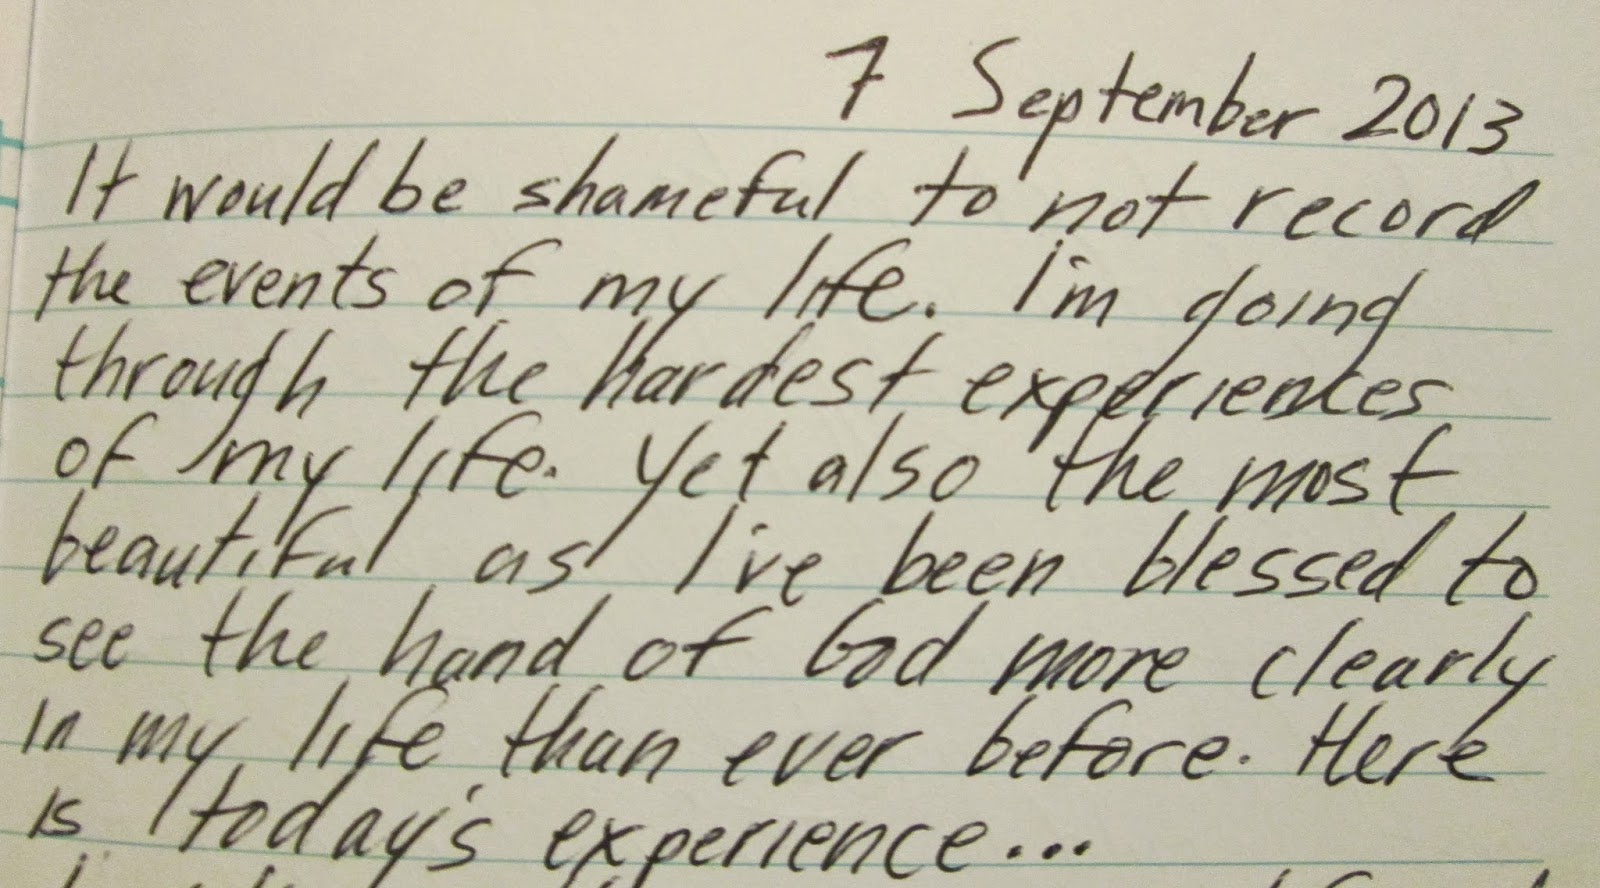 7 September 2013
It would be shameful to not record
the events of my life. I'm going
through the hardest experiences
of my life. Yet also the most
beautiful as I've been blessed to
see the hand of God more clearly
in my life than ever before. Here
is today's experience...